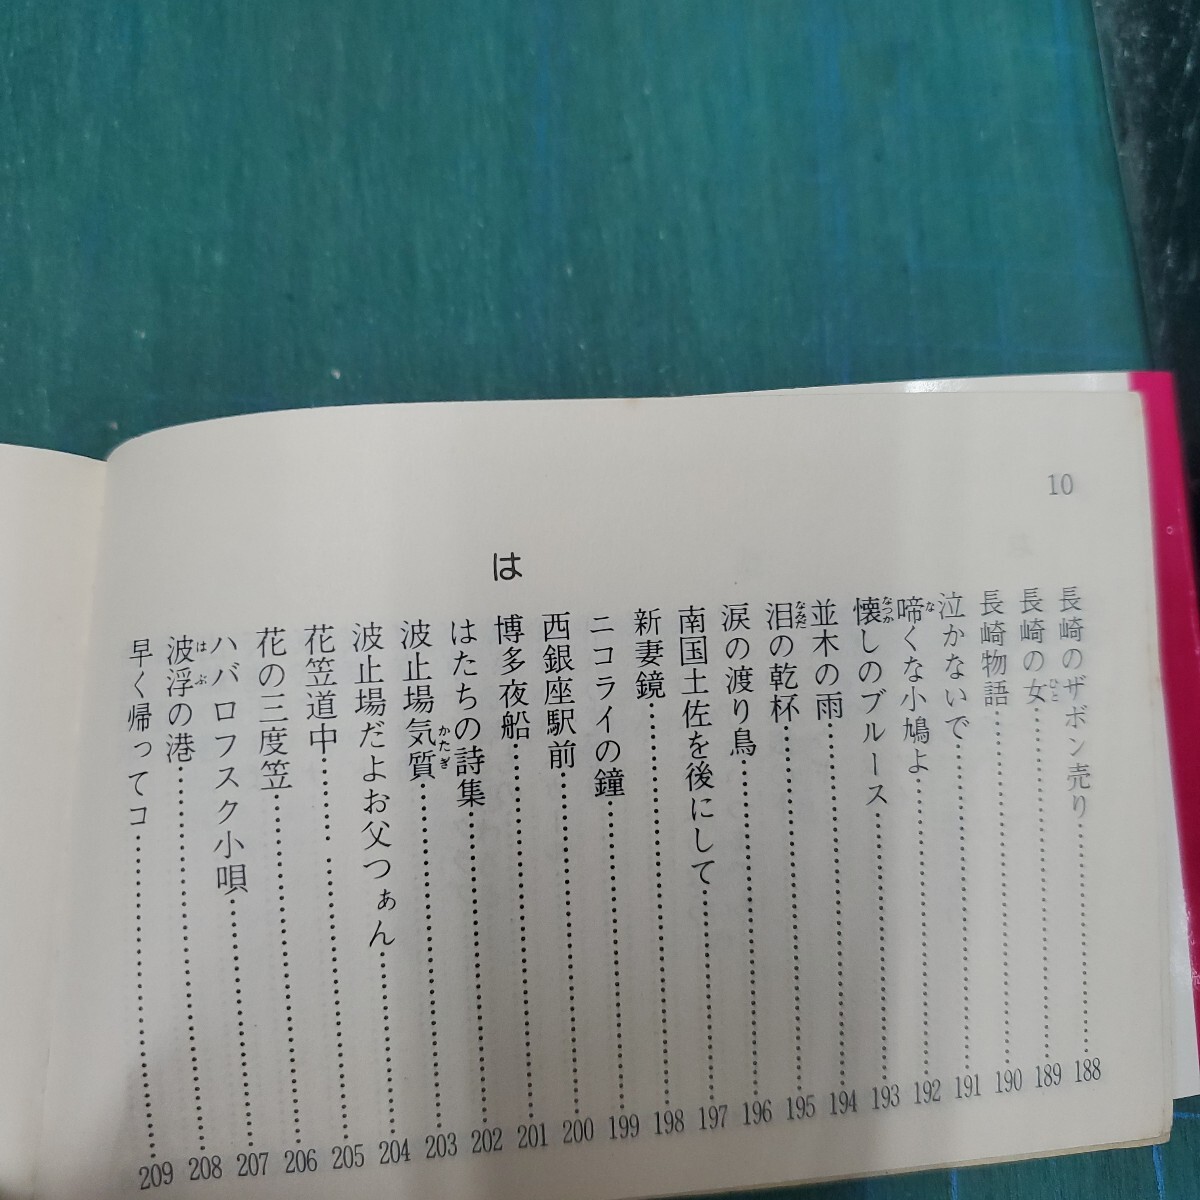 10
長崎のザボン売り……188
長崎の女……189
ひと
長崎物語……190
泣かないで……191
啼くな小鳩よ……192
な
懐しのブルース……193
なつか
並木の雨……194
泪の乾杯……195
なみだ
涙の渡り鳥……196
南国土佐を後にして……197
新妻鏡……198
ニコライの鐘……199
西銀座駅前……200
は
博多夜船……201
はたちの詩集……202
波止場気質……203
かたぎ
波止場だよお父つぁん……204
花笠道中……205
花の三度笠……206
ハバロフスク小唄……207
波浮の港……208
はぶ
早く帰ってコ……209